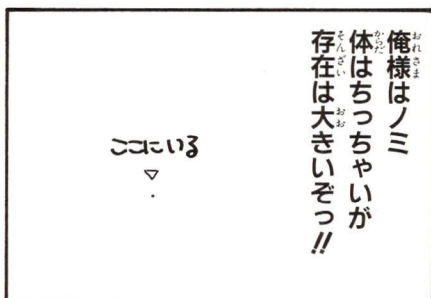 俺様はノミ
体はちっちゃいが
存在は大きいぞっ!!
ここにいる